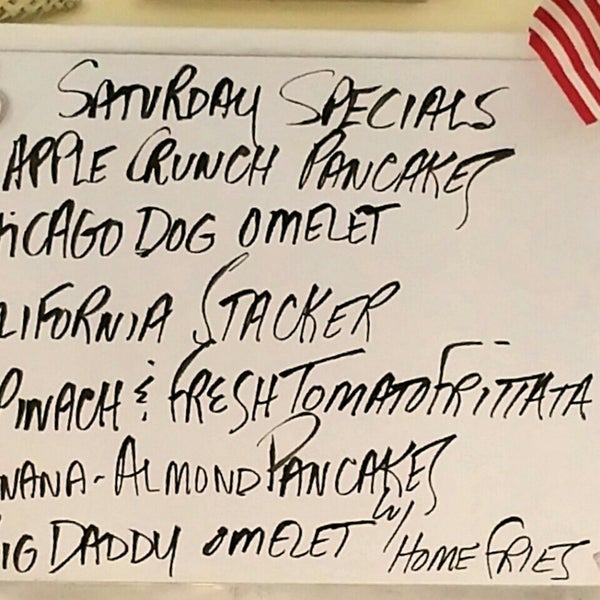 SATURDAY SPECIALS
APPLE CRUNCH PANCAKES
HICAGO DOG OMELET
LIFORNIA STACKER
PINACH & FRESH TOMATO FRITTATA
NANA-ALMOND PANCAKES
IG DADDY OMELET W/ HOME FRIES